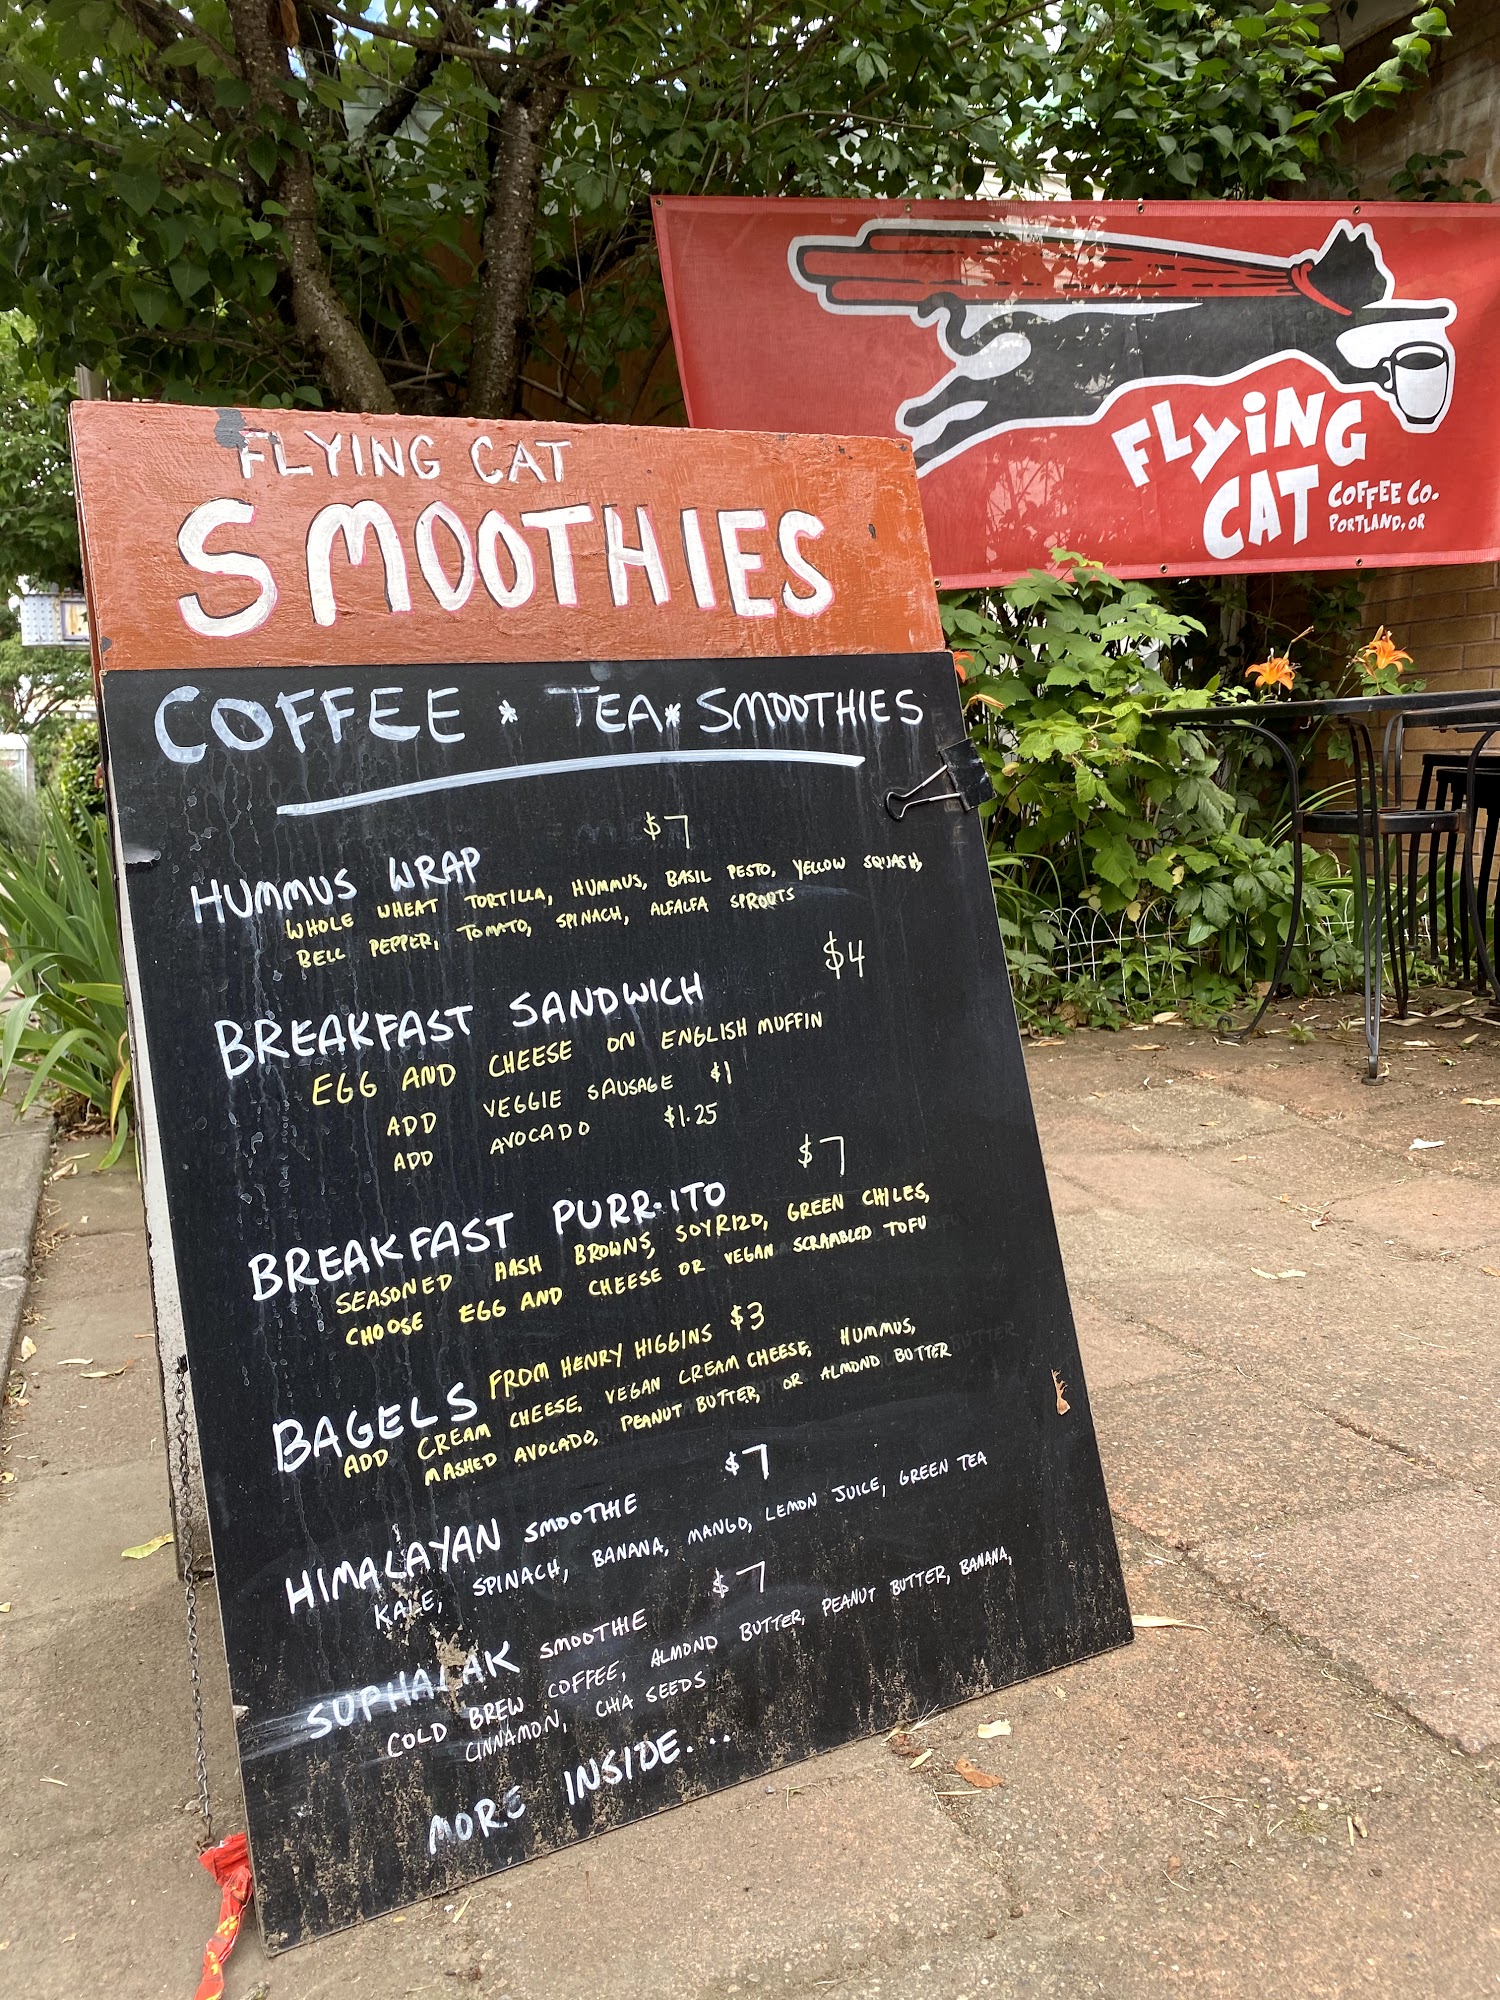 FLYING CAT
SMOOTHIES
COFFEE * TEA * SMOOTHIES
HUMMUS WRAP $7
WHOLE WHEAT TORTILLA, HUMMUS, BASIL PESTO, YELLOW SQUASH,
BELL PEPPER, TOMATO, SPINACH, ALFALFA SPROUTS
BREAKFAST SANDWICH $4
EGG AND CHEESE ON ENGLISH MUFFIN
ADD VEGGIE SAUSAGE $1
ADD AVOCADO $1.25
BREAKFAST PURR-ITO $7
SEASONED HASH BROWNS, SOYRIZO, GREEN CHILES,
CHOOSE EGG AND CHEESE OR VEGAN SCRAMBLED TOFU
BAGELS FROM HENRY HIGGINS $3
ADD CREAM CHEESE, VEGAN CREAM CHEESE, HUMMUS,
MASHED AVOCADO, PEANUT BUTTER, OR ALMOND BUTTER
HIMALAYAN SMOOTHIE $7
KALE, SPINACH, BANANA, MANGO, LEMON JUICE, GREEN TEA
SUPHALAK SMOOTHIE $7
COLD BREW COFFEE, ALMOND BUTTER, PEANUT BUTTER, BANANA,
CINNAMON, CHIA SEEDS
MORE INSIDE...
FLYiNG
CAT COFFEE CO.
PORTLAND, OR